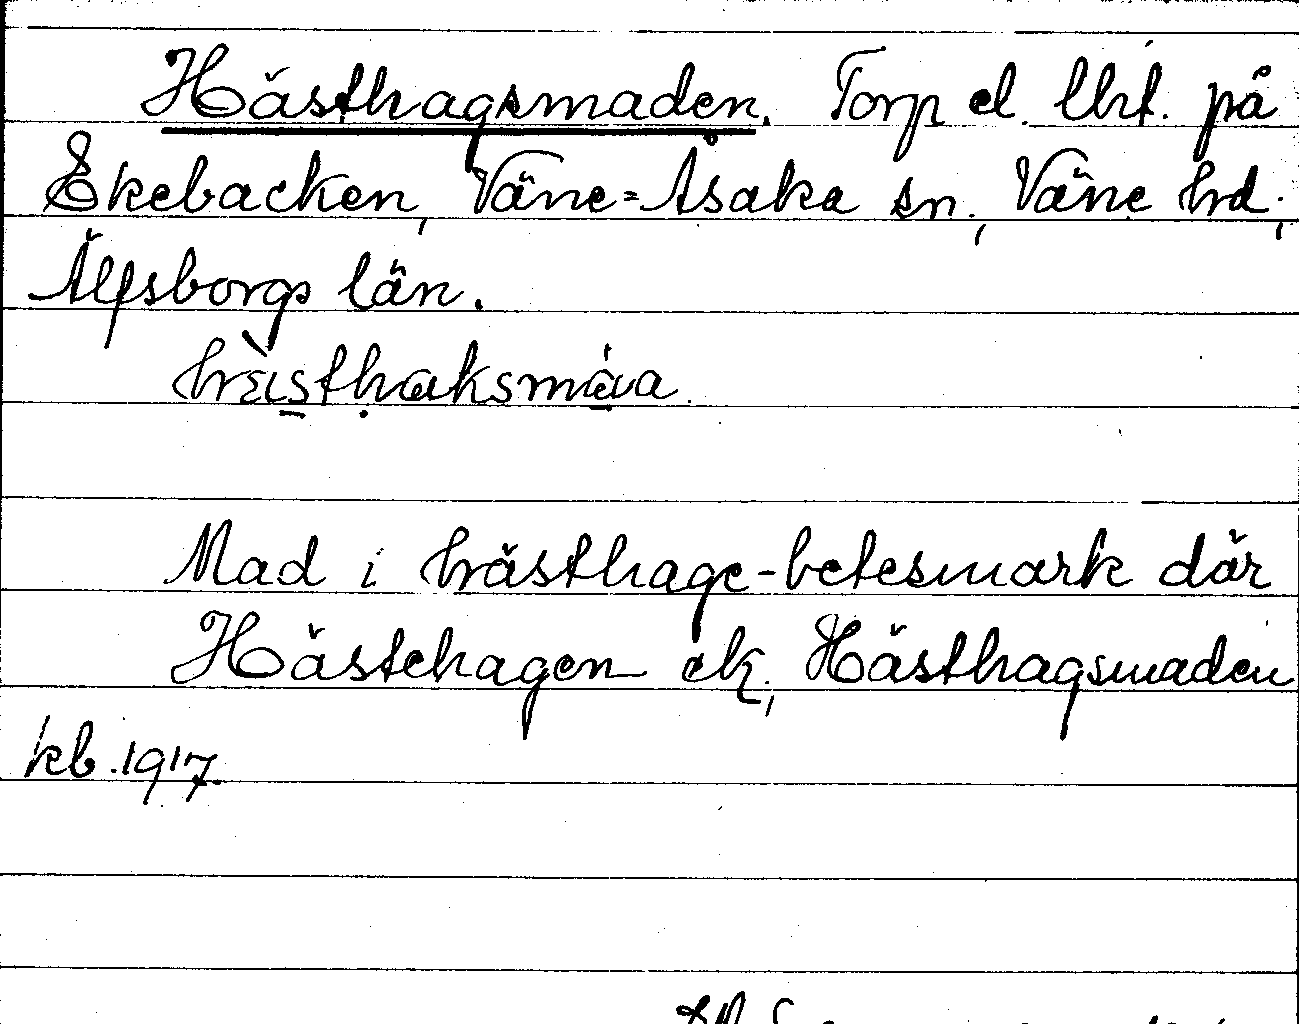 Hästhagsmaden. Torp el. lht. på
Ekebacken, Väne-Åsaka sn., Väne hd.,
Älfsborgs län.
Mad i hästhage-betesmark där
Hästehagen ek., Hästhagsmaden
kb. 1917